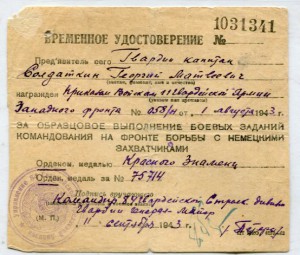 1031341
ВРЕМЕННОЕ УДОСТОВЕРЕНИЕ №
Пред'явитель сего Гвардии капитан
Солдаткин Георгий Матвеевич
награжден Приказом Войскам 11 Гвардейской Армии
Западного фронта № 058/н от 1 августа 1943 г.
ЗА ОБРАЗЦОВОЕ ВЫПОЛНЕНИЕ БОЕВЫХ ЗАДАНИЙ
КОМАНДОВАНИЯ НА ФРОНТЕ БОРЬБЫ С НЕМЕЦКИМИ
ЗАХВАТЧИКАМИ
Орденом, медалью Красного Знамени
Орден, медаль за № 75714
Подпись
Командир 84 Гвардейской Стрелк Дивизии
Гвардии Генерал-Майор
(М. П.)
" сентября 1943 г.